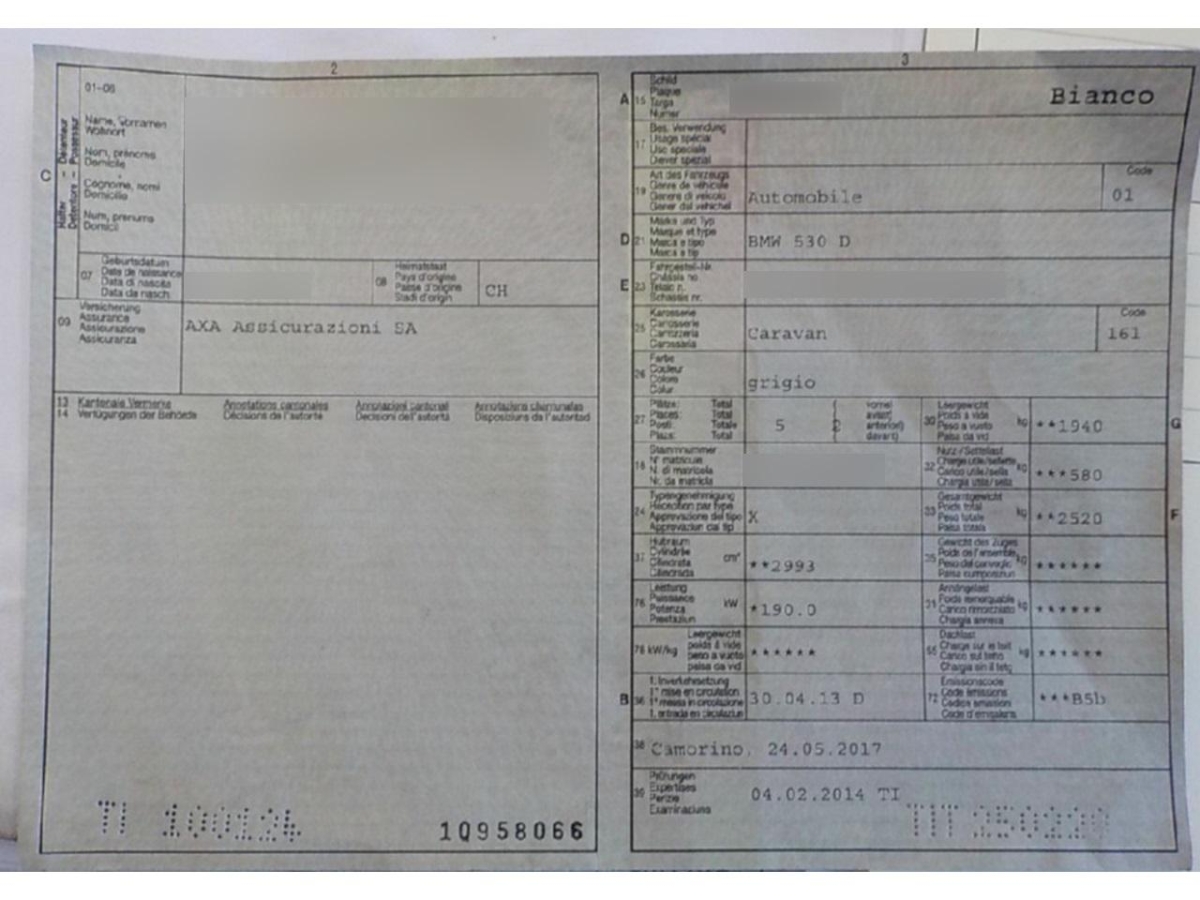 2
01-06
Name, Vornamen
Wohnort
Nom, prénoms
Domicile
Cognome, nomi
Domicilio
Num, prenums
Domicil
C
Halter Détenteur
Detentore Possessur
07
Geburtsdatum
Date de naissance
Data di nascita
Data da nasch.
08
Heimatstaat
Pays d'origine
Paese d'origine
Stadi d'origin
CH
09
Versicherung
Assurance
Assicurazione
Assicuranza
AXA Assicurazioni SA
13 Kantonale Vermerke Annotations cantonales Annotazioni cantonali Annotaziuns chantunalas
14 Verfügungen der Behörde Décisions de l'autorité Decisioni dell'autorità Disposiziuns da l'autoritad
TI 100124
10958066
3
A 15
Schild
Plaque
Targa
Numer
Bianco
17
Bes. Verwendung
Usage spécial
Uso speciale
Diever spezial
19
Art des Fahrzeugs
Genre de véhicule
Genere di veicolo
Gener dal vehichel
Automobile
Code
01
D 21
Marke und Typ
Marque et type
Marca e tipo
Marca e tip
BMW 530 D
E 23
Fahrgestell-Nr.
Châssis no.
Telaio n.
Schassis nr.
25
Karosserie
Carrosserie
Carrozzeria
Carossaria
Caravan
Code
161
26
Farbe
Couleur
Colore
Colur
grigio
27
Plätze: Total
Places: Total
Posti: Totale
Plazs: Total
5 ( 2
vorne)
avant)
anteriori)
davant)
30
Leergewicht
Poids à vide
Peso a vuoto
Paisa da vid
kg **1940
G
18
Stammnummer
N° matricule
N. di matricola
Nr. da matricla
32
Nutz-/Sattellast
Charge utile/sellette
Carico utile/sella
Chargia utila/sella
kg ***580
24
Typengenehmigung
Réception par type
Approvazione del tipo
Approvaziun dal tip
X
33
Gesamtgewicht
Poids total
Peso totale
Paisa totala
kg **2520
F
37
Hubraum
Cylindrée
Cilindrata
Cilindrada
cm³ **2993
35
Gewicht des Zuges
Poids de l'ensemble
Peso del convoglio
Paisa cumposiziun
kg ******
76
Leistung
Puissance
Potenza
Prestaziun
kW *190.0
31
Anhängelast
Poids remorquable
Carico rimorchiato
Chargia annexa
kg ******
78 kW/kg
Leergewicht
poids à vide
peso a vuoto
paisa da vid
******
55
Dachlast
Charge sur le toit
Carico sul tetto
Chargia sin il tetg
kg ******
B 36
1. Inverkehrsetzung
1re mise en circulation
1a messa in circolazione
1. entrada en circulaziun
30.04.13 D
72
Emissionscode
Code émissions
Codice emissioni
Code d'emissiuns
***B5b
38 Camorino, 24.05.2017
39
Prüfungen
Expertises
Perizie
Examinaziuns
04.02.2014 TI